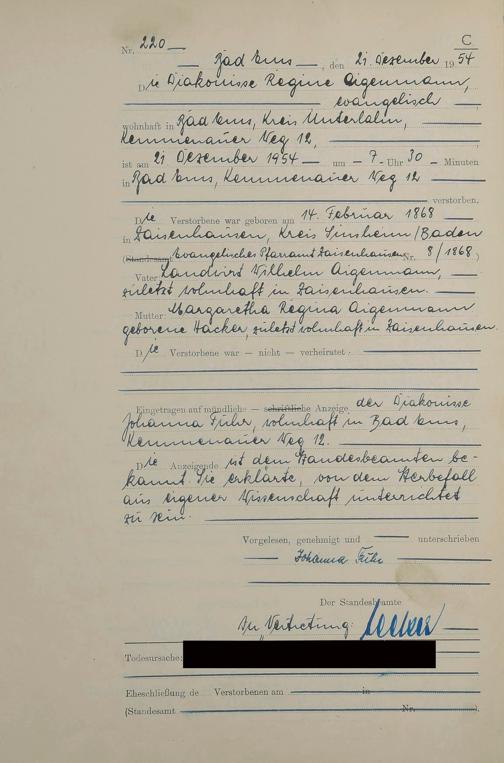 C
Nr. 220
Bad Ems, den 21. Dezember 1954
Die Diakonisse Regine Aigenmann,
evangelisch
wohnhaft in Bad Ems, Kreis Unterlahn,
Kemmenauer Weg 12,
ist am 21. Dezember 1954 um 7 Uhr 30 Minuten
in Bad Ems, Kemmenauer Weg 12
verstorben.
Die Verstorbene war geboren am 14. Februar 1868
in Zaisenhausen, Kreis Sinsheim/Baden
(Standesamt Evangelisches Pfarramt Zaisenhausen Nr. 8/1868)
Vater: Landwirt Wilhelm Aigenmann,
zuletzt wohnhaft in Zaisenhausen.
Mutter: Margaretha Regina Aigenmann
geborene Hacker, zuletzt wohnhaft in Zaisenhausen.
Die Verstorbene war — nicht — verheiratet
Eingetragen auf mündliche — schriftliche Anzeige der Diakonisse
Johanna Fuhr, wohnhaft in Bad Ems,
Kemmenauer Weg 12.
Die Anzeigende ist dem Standesbeamten be-
kannt. Sie erklärte, von dem Sterbefall
aus eigener Wissenschaft unterrichtet
zu sein.
Vorgelesen, genehmigt und unterschrieben
Johanna Fuhr
Der Standesbeamte
In Vertretung:
Todesursache:
Eheschließung de Verstorbenen am in
(Standesamt Nr. ).